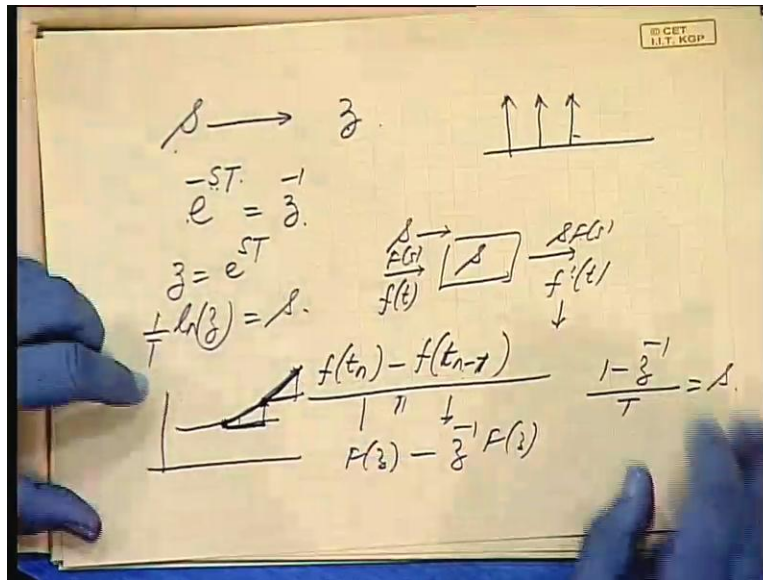 © CET
I.I.T. KGP
s → z
e^{-ST} = z^{-1}
z = e^{ST}
1/T ln(z) = s.
s →
F(s)
f(t)
s
sF(s)
f'(t)
f(t_n) - f(t_{n-1})
F(z) - z^{-1} F(z)
(1 - z^{-1})/T = s.